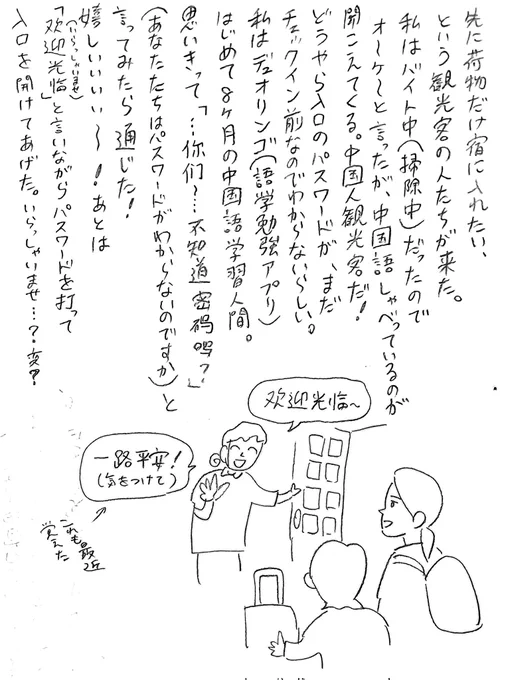 先に荷物だけ宿に入れたい、
という観光客の人たちが来た。
私はバイト中(掃除中)だったので
オーケ〜と言ったが、中国語しゃべっているのが
聞こえてくる。中国人観光客だ!
どうやら入口のパスワードが、まだ
チェックイン前なのでわからないらしい。
私はデュオリンゴ(語学勉強アプリ)
はじめて8ヶ月の中国語学習人間。
思いきって「…你们〜…不知道密码吗?」
(あなたたちはパスワードがわからないのですか)と
言ってみたら通じた!
嬉しいいいい〜!あとは
(いらっしゃいませ)
「欢迎光临」と言いながらパスワードを打って
入口を開けてあげた。いらっしゃいませ…?変?
欢迎光临〜
一路平安!
(気をつけて)
これも最近
覚えた